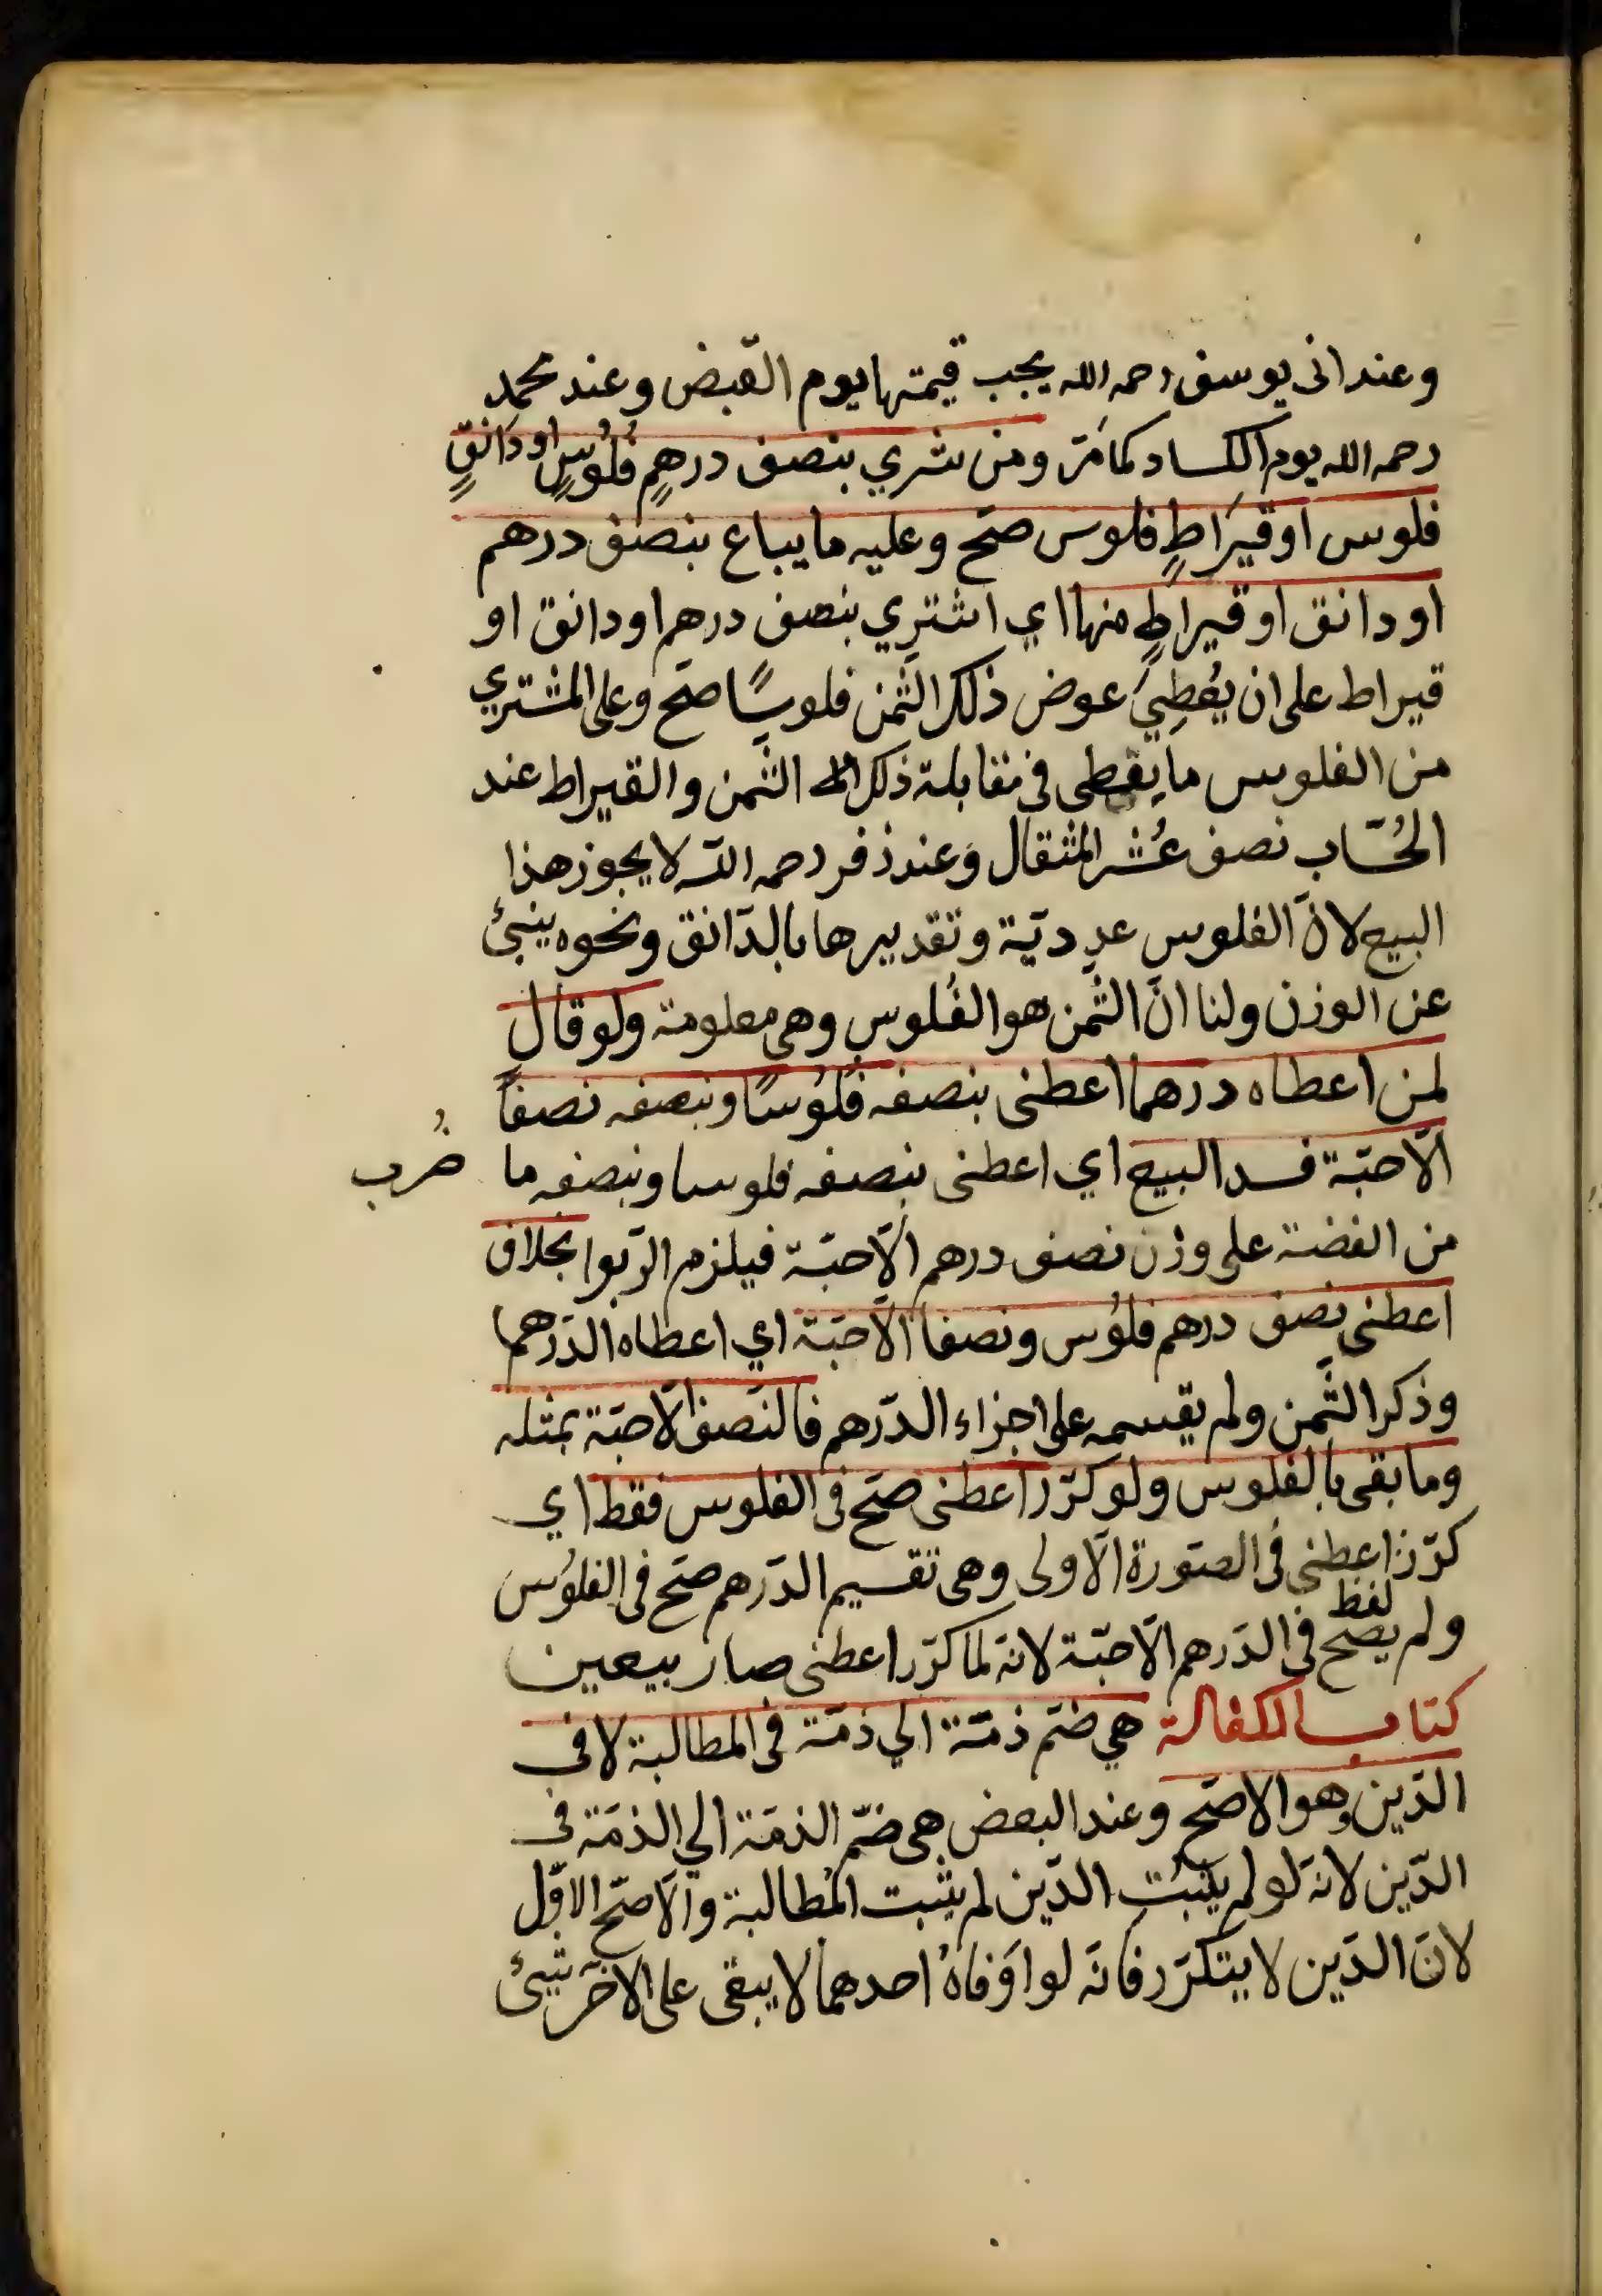 وعند ابى يوسف رحمه الله يجب قيمتها يوم القبض وعند محمد
رحمه الله يوم الكساد كما مَرّ ومن شري بنصف درهمٍ فُلُوسٍ او دَانقٍ
فلوس او قيرَاطٍ فلوس صحّ وعليه ما يباع بنصف درهم
او دانق او قيراطٍ منها اي اشتري بنصف درهم او دانق او
قيراط على ان يُعْطِيَ عوض ذلك الثّمن فلوسًا صحّ وعلى المشتري
من الفلوس ما يعطى فى مقابلة ذلك الثّمن والقيراط عند
الحُسّاب نصف عُشر المثقال وَعند زفر رحمه اللّه لا يجوز هذا
البيع لانّ الفلوس عدديّة وتقديرها بالدّانق ونحوه ينبئ
عن الوزن ولنا انّ الثّمن هو الفُلوس وهى معلومة ولو قال
لمن اعطاه درهما اعطنى بنصفه فُلُوسًا وبنصفه نصفاً
الّا حبّة فسد البيع اي اعطنى بنصفه فلوسا وبنصفه ما ضُرب
من الفضة على وزن نصف درهم الّا حبّة فيلزم الرّبوا بخلاف
اعطنى نصف درهم فلُوس ونصفا الّا حبّة اي اعطاه الدّرهما
وذكر الثّمن ولم يقسمه على اجزاء الدّرهم فالنّصف الّا حبّة بمثله
وما بقى بالفلوس ولو كرّر اعطنى صحّ فى الفلوس فقط اي
كرّر لفظ اعطنى فى الصّورة الاولى وهى تقسيم الدّرهم صحّ فى الفلُوس
ولم يصح فى الدّرهم الّا حبّة لانّه لمّا كرّر اعطنى صار بيعين
كتاب الكفالة هي ضمّ ذمّة الي ذمّة فى المطالبة لا فى
الدّين وهو الاصحّ وعند البعض هى ضمّ الذمّة الي الذمّة فى
الدّين لانّه لو لم يثبت الدّين لم يثبت المُطالبة والاصحّ الاوّل
لانّ الدّين لا يتكرّر فانّه لو اَوفاهُ احدهما لا يبقى على الاخر شيئ